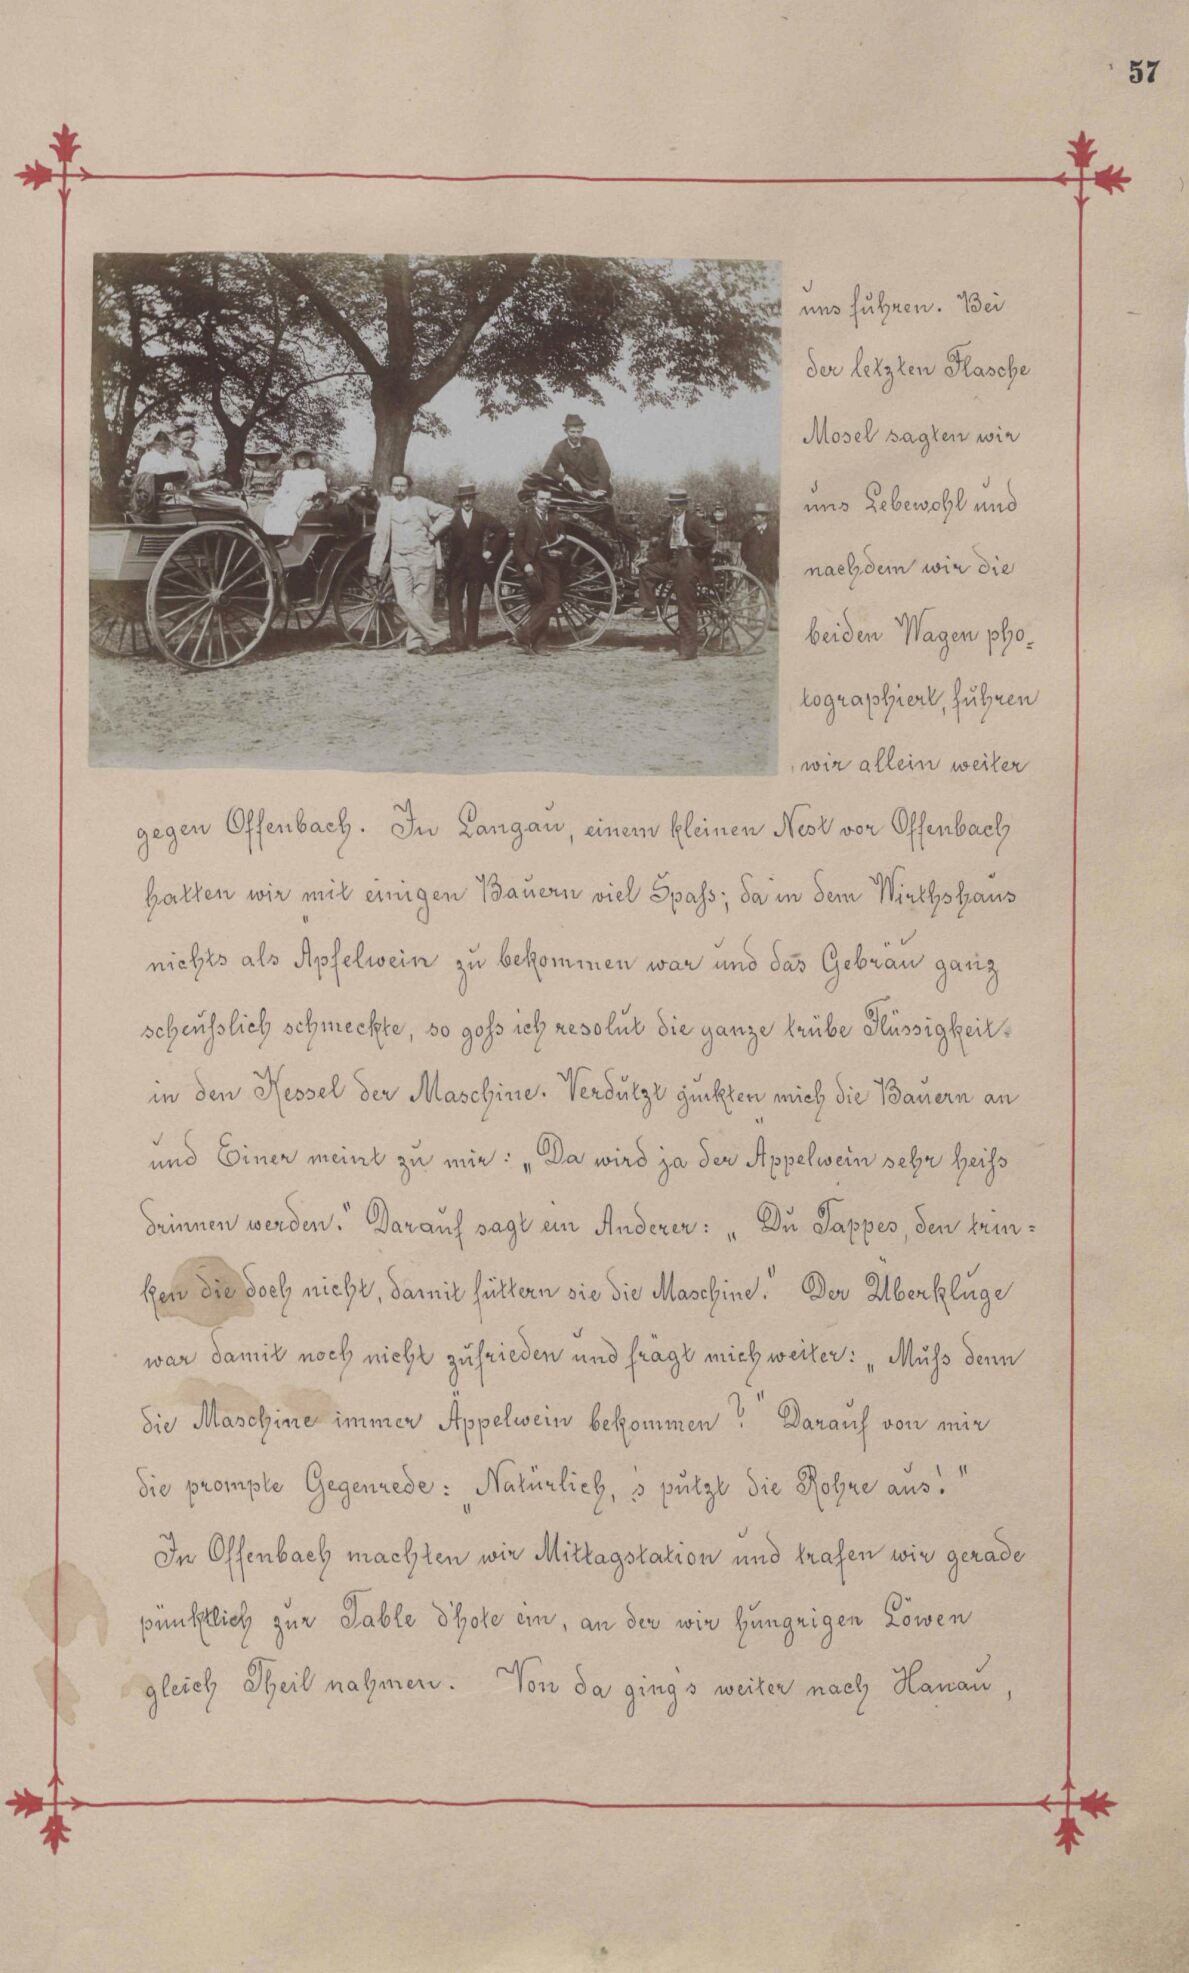 57
uns fuhren. Bei
der letzten Flasche
Mosel sagten wir
uns Lebewohl und
nachdem wir die
beiden Wagen pho=
tographiert, fuhren
wir allein weiter
gegen Offenbach. In Langau, einem kleinen Nest vor Offenbach
hatten wir mit einigen Bauern viel Spaß; da in dem Wirthshaus
nichts als Äpfelwein zu bekommen war und das Gebräu ganz
scheußlich schmeckte, so goß ich resolut die ganze trübe Flüssigkeit
in den Kessel der Maschine. Verdutzt guckten mich die Bauern an
und Einer meint zu mir: „Da wird ja der Äppelwein sehr heiß
drinnen werden." Darauf sagt ein Anderer: „Du Tappes, den trin=
ken die doch nicht, damit füttern sie die Maschine." Der Überkluge
war damit noch nicht zufrieden und frägt mich weiter: „Muß denn
die Maschine immer Äppelwein bekommen?" Darauf von mir
die prompte Gegenrede: „Natürlich, 's putzt die Rohre aus!"
In Offenbach machten wir Mittagstation und trafen wir gerade
pünktlich zur Table d'hote ein, an der wir hungrigen Löwen
gleich Theil nahmen. Von da ging's weiter nach Hanau,